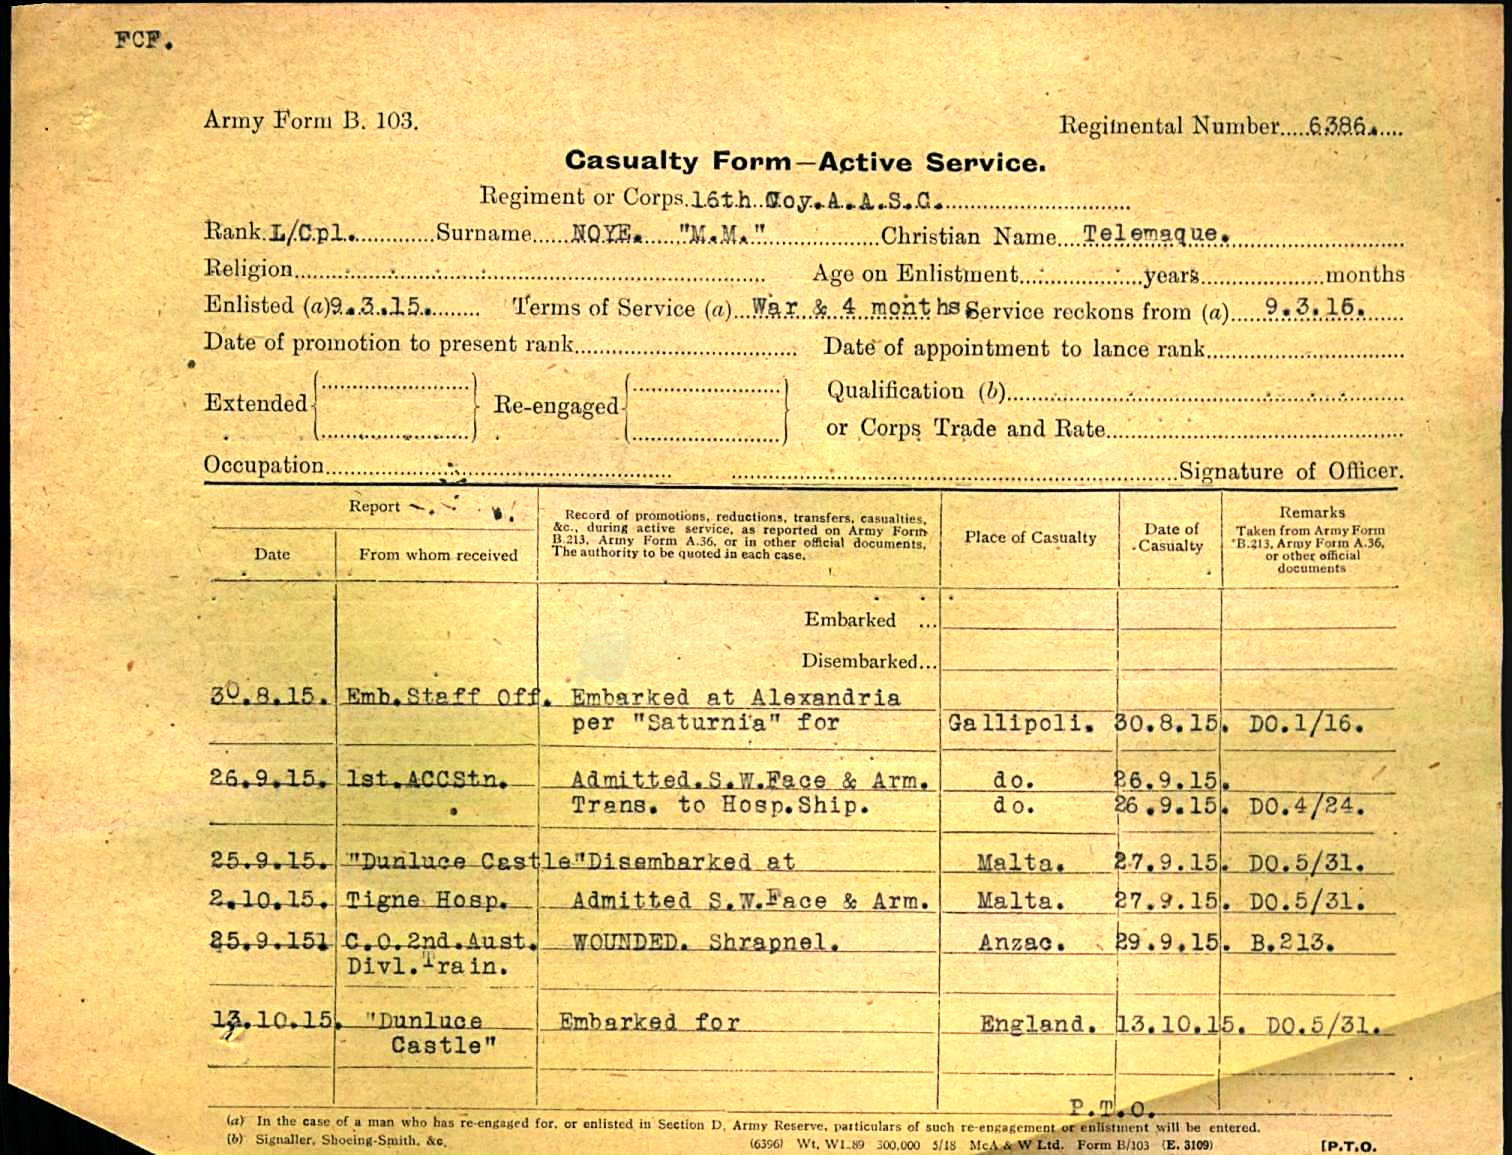 FCF.
Army Form B. 103.
Regimental Number.....6386.....
Casualty Form—Active Service.
Regiment or Corps.16th Coy.A.A.S.C.
Rank.L/Cpl. Surname NOYE. "M.M." Christian Name Telemaque.
Religion Age on Enlistment years months
Enlisted (a)9.3.15. Terms of Service (a) War & 4 months Service reckons from (a) 9.3.15.
Date of promotion to present rank Date of appointment to lance rank
Extended Re-engaged Qualification (b)
or Corps Trade and Rate
Occupation Signature of Officer.
Report
Date
From whom received
Record of promotions, reductions, transfers, casualties,
&c., during active service, as reported on Army Form
B.213, Army Form A.36, or in other official documents.
The authority to be quoted in each case.
Place of Casualty
Date of
Casualty
Remarks
Taken from Army Form
B.213, Army Form A.36,
or other official
documents
Embarked ...
Disembarked...
30.8.15. Emb.Staff Off. Embarked at Alexandria
per "Saturnia" for Gallipoli. 30.8.15. DO.1/16.
26.9.15. 1st.ACCStn. Admitted.S.W.Face & Arm. do. 26.9.15.
Trans. to Hosp.Ship. do. 26.9.15. DO.4/24.
25.9.15. "Dunluce Castle"Disembarked at Malta. 27.9.15. DO.5/31.
2.10.15. Tigne Hosp. Admitted S.W.Face & Arm. Malta. 27.9.15. DO.5/31.
25.9.15. C.O.2nd.Aust. WOUNDED. Shrapnel. Anzac. 29.9.15. B.213.
Divl.Train.
13.10.15. "Dunluce Embarked for England. 13.10.15. DO.5/31.
Castle"
P.T.O.
(a) In the case of a man who has re-engaged for, or enlisted in Section D, Army Reserve, particulars of such re-engagement or enlistment will be entered.
(b) Signaller, Shoeing-Smith, &c.
(6396) Wt. W1.89 300,000 5/18 McA & W Ltd. Form B/103 (E. 3109) [P.T.O.